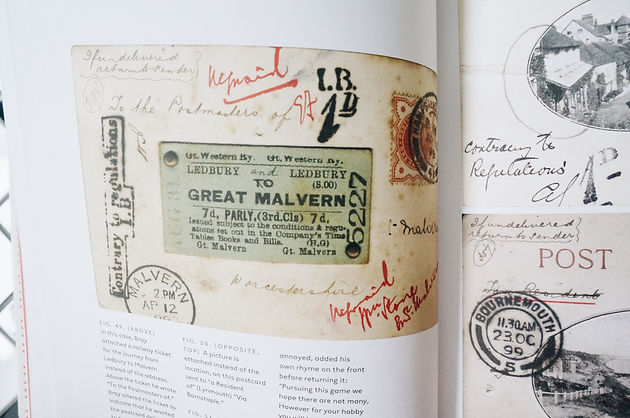 If undelivered
return to sender
Repaid
I.B.
1D
To the Postmasters of
Contrary to regulations
I.B.
Gt. Western Ry. Gt. Western Ry.
LEDBURY and LEDBURY
TO (S.00)
GREAT MALVERN
7d, PARLY,(3rd.Cls) 7d,
Issued subject to the conditions & regu-
lations set out in the Company's Time
Tables Books and Bills. (H,G)
Gt. Malvern Gt. Malvern
5227
MALVERN
2.PM
AP 12
Worcestershire
FIG. 49. (ABOVE)
In this case, Bray
attached a railway ticket
for the journey from
Ledbury to Malvern
instead of the address.
Above the ticket he wrote
"To the Postmasters of."
Bray altered the ticket to
indicate that he wanted
FIG. 50. (OPPOSITE,
TOP) A picture is
attached instead of the
location, on this postcard
sent to "a Resident
of (Lynmouth) "Via
Barnstaple."
FIG. 51.
annoyed, added his
own rhyme on the front
before returning it:
"Pursuing this game we
hope there are not many,
However for your hobby
contrary to
Regulations
1D
If undelivered
return to sender
357
POST
To a Resident
BOURNEMOUTH
11.30AM
23 OC
99
5